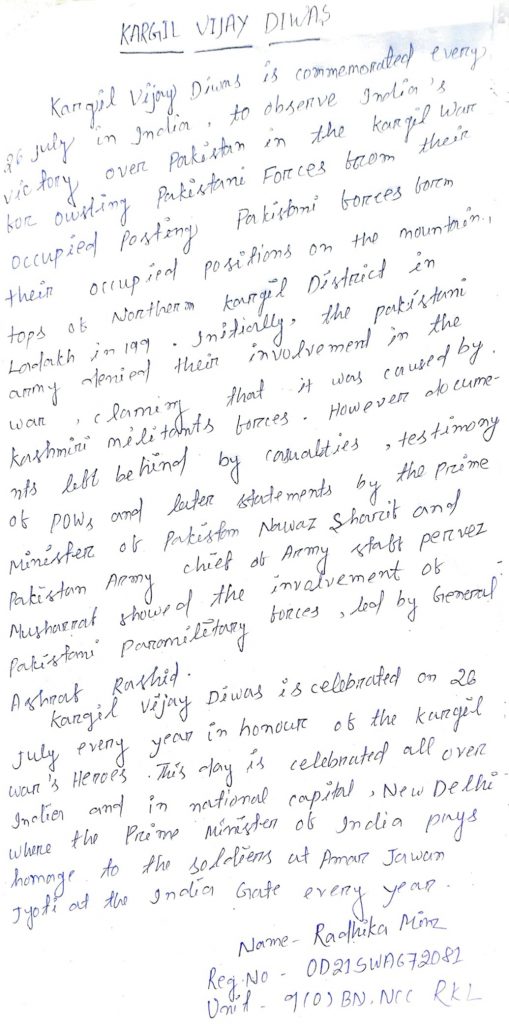 KARGIL VIJAY DIWAS
Kargil Vijay Diwas is commemorated every
26 July in India, to observe India's
victory over Pakistan in the Kargil War
for owsting Pakistani Forces from their
occupied Posting Pakistani forces form
their occupied positions on the mountain,
tops of Northern Kargil District in
Ladakh in 199. Initially, the pakistani
army denied their involvement in the
war, claming that it was caused by.
Kashmiri militants forces. However docume-
nts left behind by casualties, testimony
of POWs and later statements by the Prime
Minister of Pakistan Nawaz Sharif and
Pakistan Army chief of Army staff pervez
Musharraf showed the involvement of
Pakistani Paramilitary forces, led by General
Ashraf Rashid.
Kargil Vijay Diwas is celebrated on 26
July every year in honour of the Kargil
war's Heroes. This day is celebrated all over
Indien and in national capital, New Delhi
where the Prime Minister of India pays
homage to the soldiers at Amar Jawan
Jyoti at the India Gate every year.
Name - Radhika Minz
Reg.No - OD21SWA672081
Unit - 9(O) BN. NCC RKL